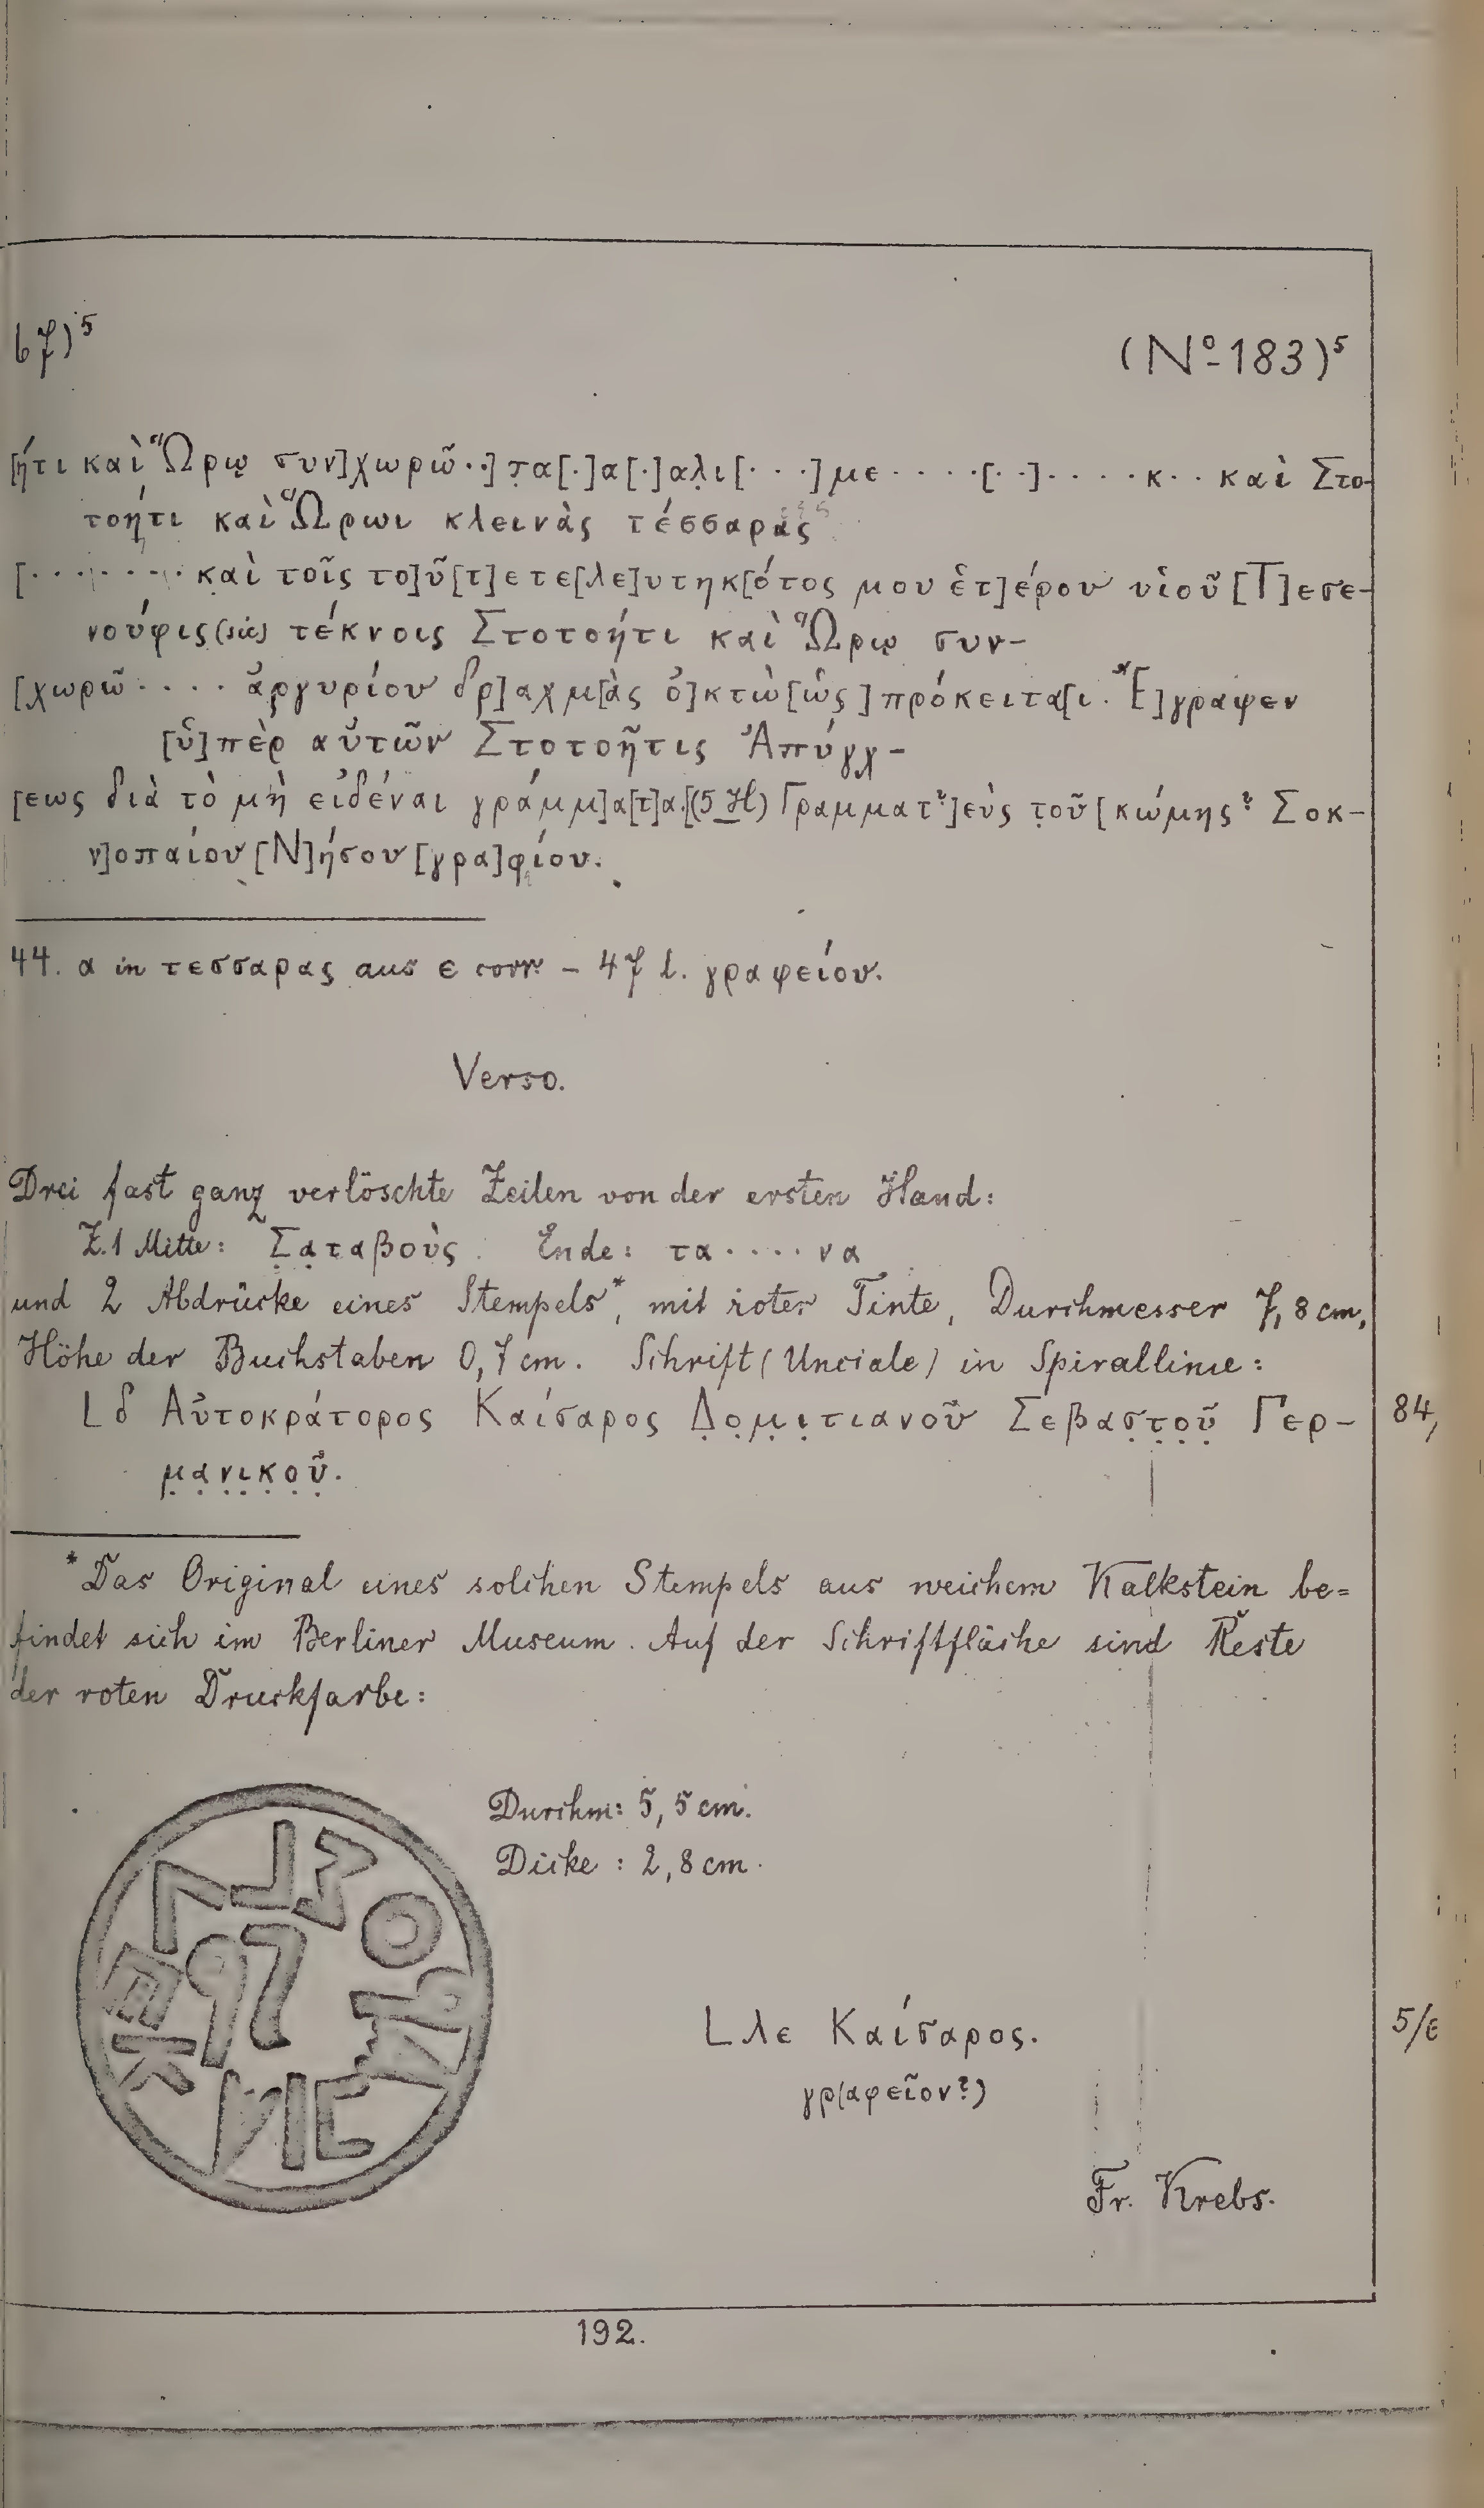 67)⁵ (Nº 183)⁵
[ήτι καὶ Ὥρῳ συν]χωρῶ··] τ̣α[·]α[·]αλ̣ι[···]με····[··]····κ··καὶ Στο-
τοήτι καὶ Ὥρωι κλεινὰς τέσσαρας
[········καὶ τοῖς το]ῦ[τ]ετε[λε]υτηκ[ότος μου ἑτ]έρου υἱοῦ [Τ]εσε-
νούφις (sic) τέκνοις Στοτοήτι καὶ Ὥρῳ συν-
[χωρῶ····ἀργυρίου δρ]αχμ[ὰς ὀ]κτὼ[ὡς]πρόκειτα[ι. Ἔ]γραψεν
[ὑ]πὲρ αὐτῶν Στοτοῆτις Ἀπύγχ-
[εως διὰ τὸ μὴ εἰδέναι γράμμ]α[τ]α.[(5 H) Γραμματ?]εὺς τ̣οῦ [κώμης? Σοκ-
ν]οπαίου [Ν]ήσου [γρα]φίου.
44. α in τεσσαρας aus ε corr. – 47 l. γραφείου.
Verso.
Drei fast ganz verlöschte Zeilen von der ersten Hand:
Z.1 Mitte: Σ̣α̣τ̣αβοὺς Ende: τα····να
und 2 Abdrücke eines Stempels*, mit roter Tinte, Durchmesser 7,8 cm,
Höhe der Buchstaben 0,7 cm. Schrift (Unciale) in Spirallinie:
L δ Αὐτοκράτορος Καίσαρος Δ̣ο̣μ̣ι̣τιανοῦ Σεβασ̣τ̣ο̣ῦ̣ Γερ- 84,
μ̣α̣ν̣ι̣κ̣ο̣ῦ̣.
*Das Original eines solchen Stempels aus weichem Kalkstein be=
findet sich im Berliner Museum. Auf der Schriftfläche sind Reste
der roten Druckfarbe:
Durchm: 5,5 cm.
Dicke: 2,8 cm.
L λε Καίσαρος. 5/6
γρ(αφεῖον?)
Fr. Krebs.
192.